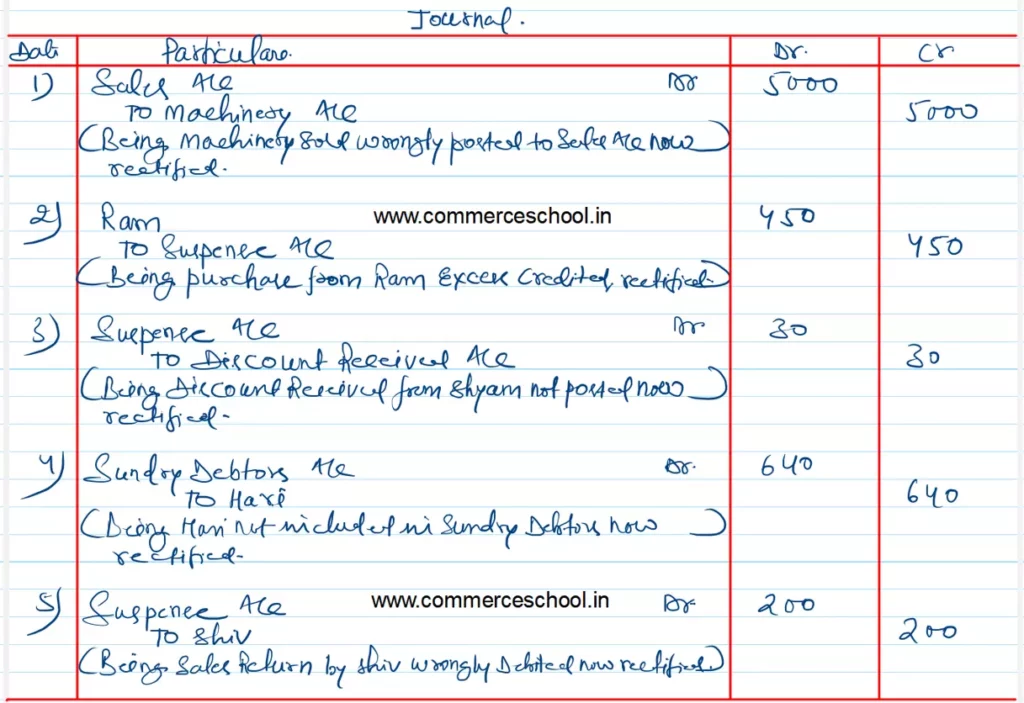 Journal.
Date Particulars. Dr. Cr
1) Sales A/c Dr 5000
To Machinery A/c 5000
(Being Machinery sold wrongly posted to Sales A/c now)
rectified.
2) Ram www.commerceschool.in 450
To Suspense A/c 450
(Being purchase from Ram Excess Credited, rectified)
3) Suspense A/c Dr. 30
To Discount Received A/c 30
(Being Discount Received from Shyam not posted now)
rectified.
4) Sundry Debtors A/c Dr. 640
To Hari 640
(Being Hari not included in Sundry Debtors now)
rectified.
5) Suspense A/c www.commerceschool.in Dr 200
To Shiv 200
(Being Sales Return by Shiv wrongly Debited now rectified)